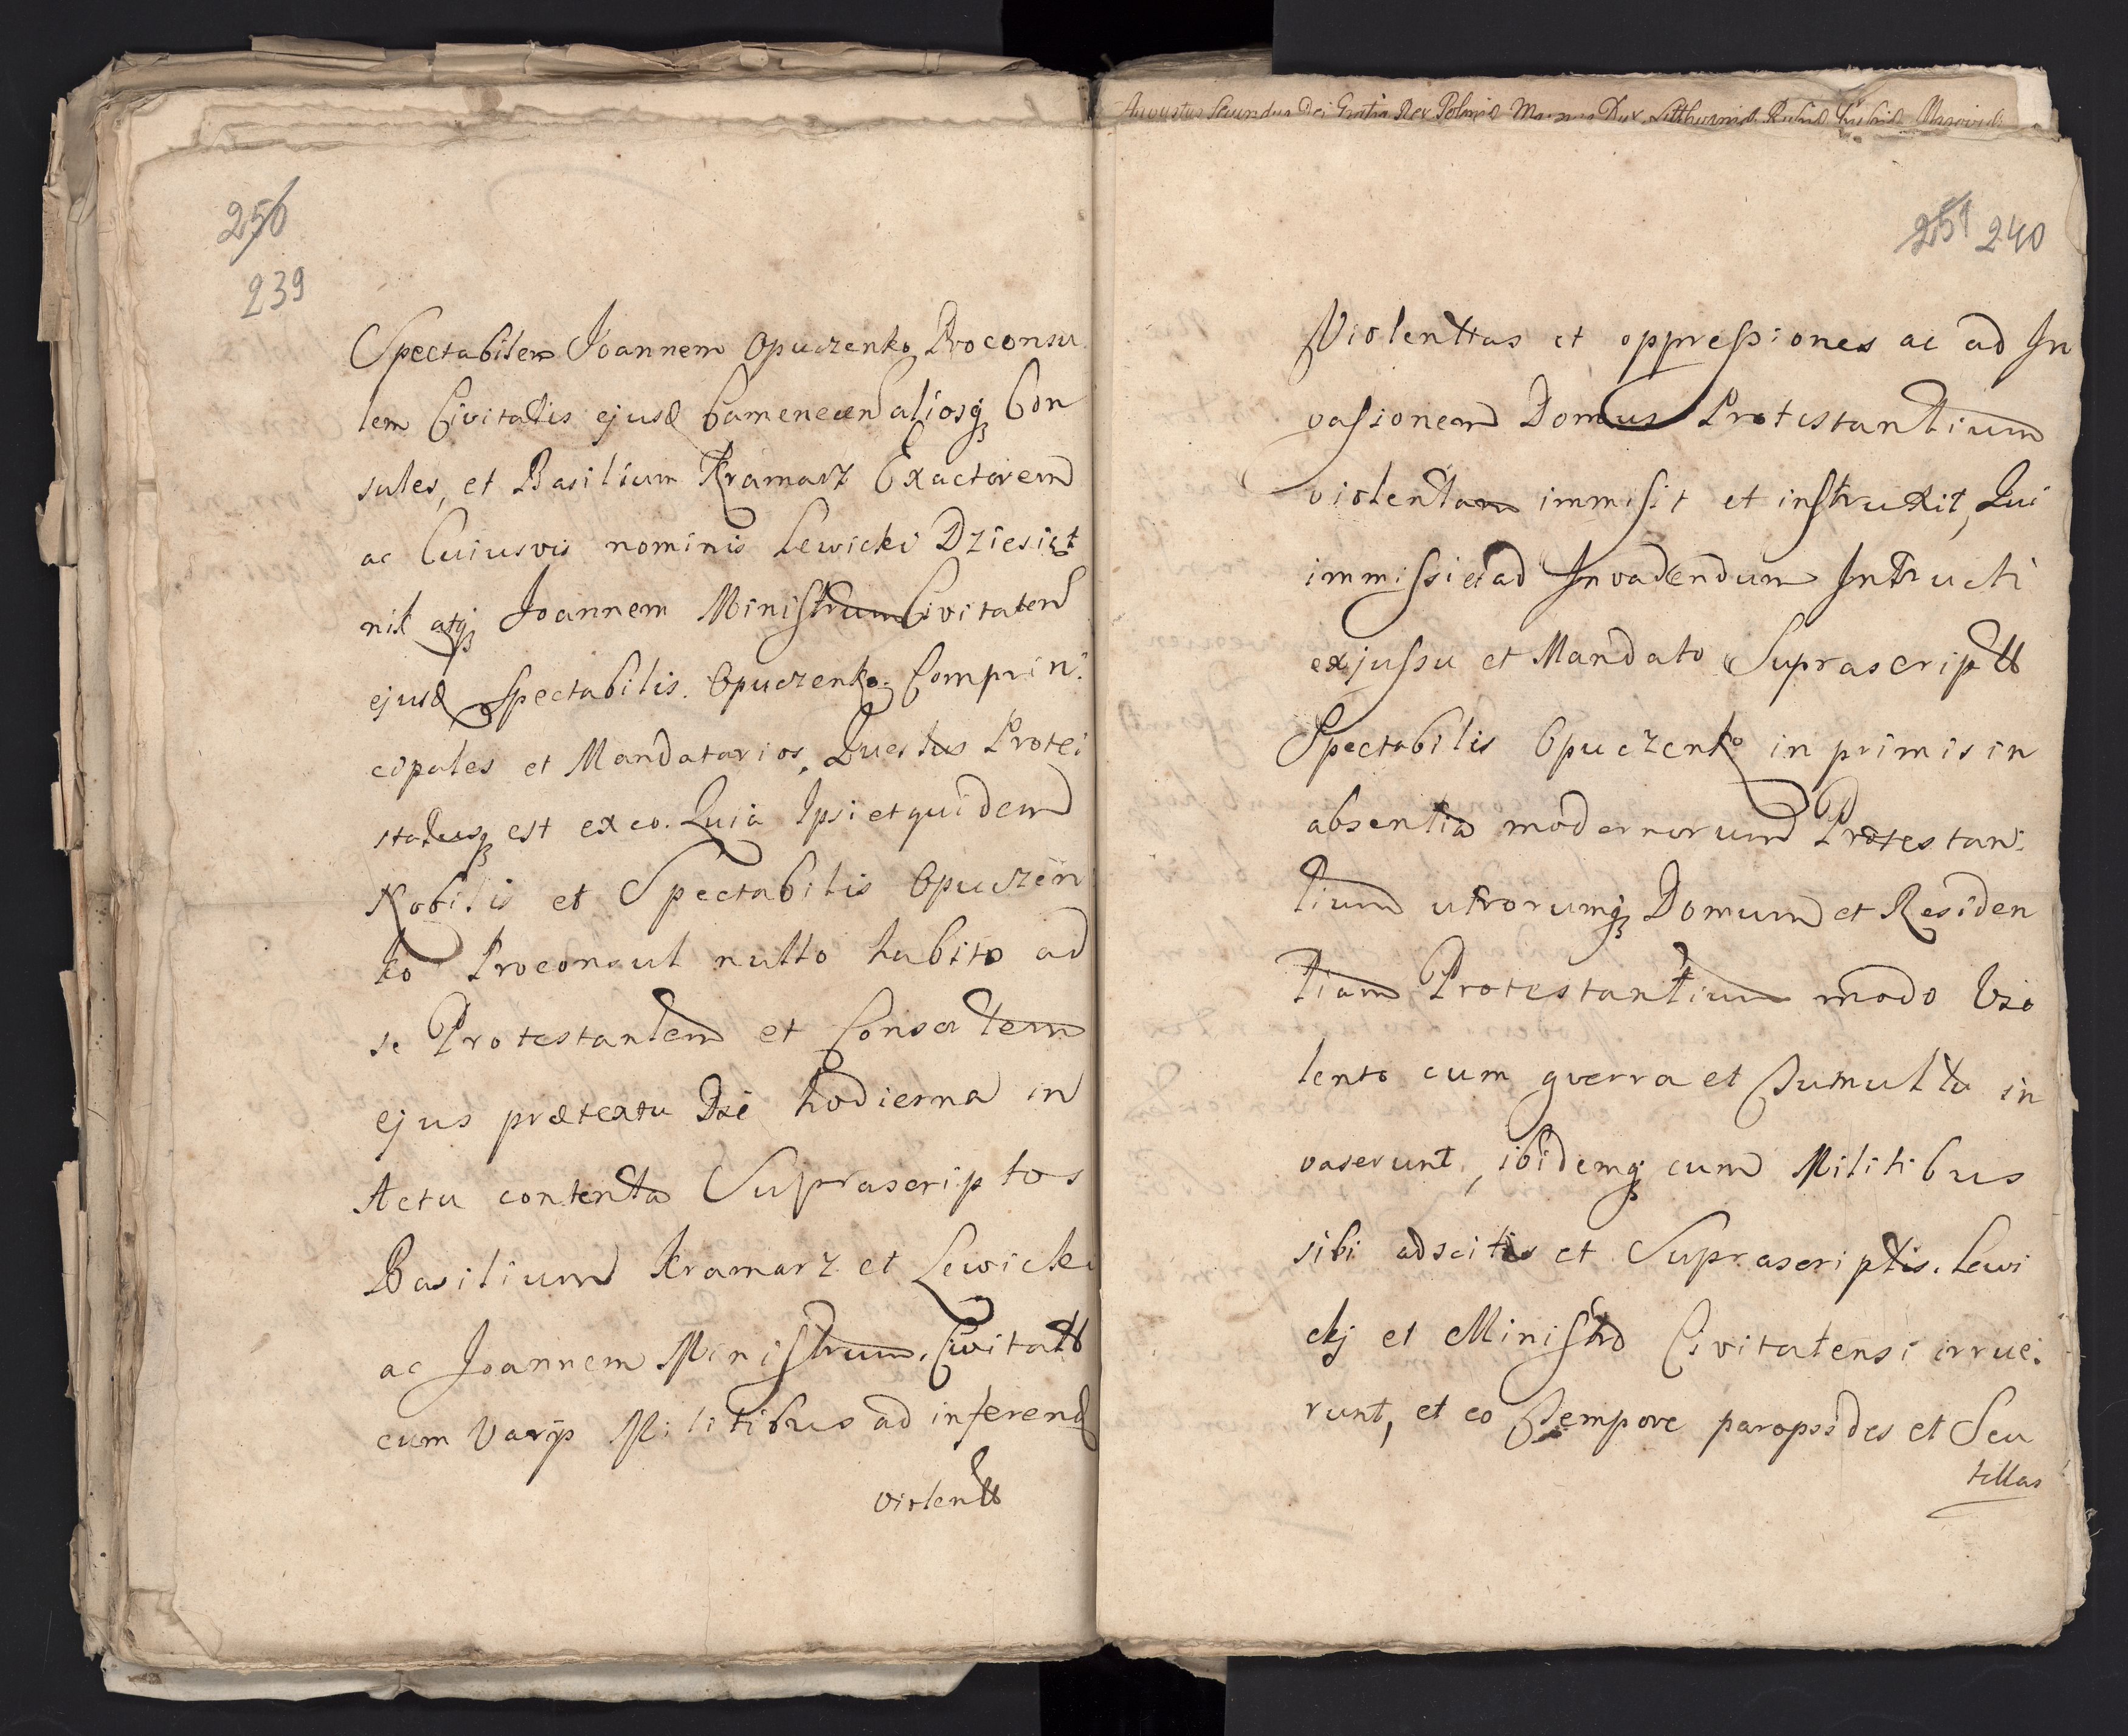 250
239
Spectabilem Joannem Opuczenko Proconsu
lem Civitatis ejusd Camenecen aliosq Con
sules, et Basilium Kramarz Exactorem
ac Cuiusvis nominis Lewicki Dziesięt
nik atq Joannem Ministrum Civitaten
ejusd Spectabilis. Opuczenko. Comprin:
cipales et Mandatarios, Questus Prote:
statusq est ex eo. Quia Ipsi et quidem
Nobilis et Spectabilis Opuczen
ko Proconsul nullo habito ad
se Protestantem et Consortem
ejus prætextu Die hodierna in
Actu contenta Suprascriptos
Basilium Kramarz et Lewicki
ac Joannem Ministrum. Civitatt
cum Varijs Militibus ad inferend
violentt
Augustus Secundus Dei Gratia Rex Poloniæ Magnus Dux Litthuaniæ Russiæ Prussiæ Masoviæ
251 240
Violenttas et oppressiones ac ad In
vasionem Domus Protestantium
violentam immisit et instruxit, Qui
immissi et ad Invadendum Intructi
ex jussu et Mandato Suprascriptt
Spectabilis Opuczenko in primis in
absentia modernorum Protestan:
tium utrorumq Domum et Residen
tiam Protestantium modo Vio
lento cum guerra et Tumultu in
vaserunt, ibidemq cum Militibus
sibi adscitis et Suprascriptis. Lewi
ckj et Ministro Civitatensi irrue:
runt, et eo Tempore paropsides et Scu
tellas